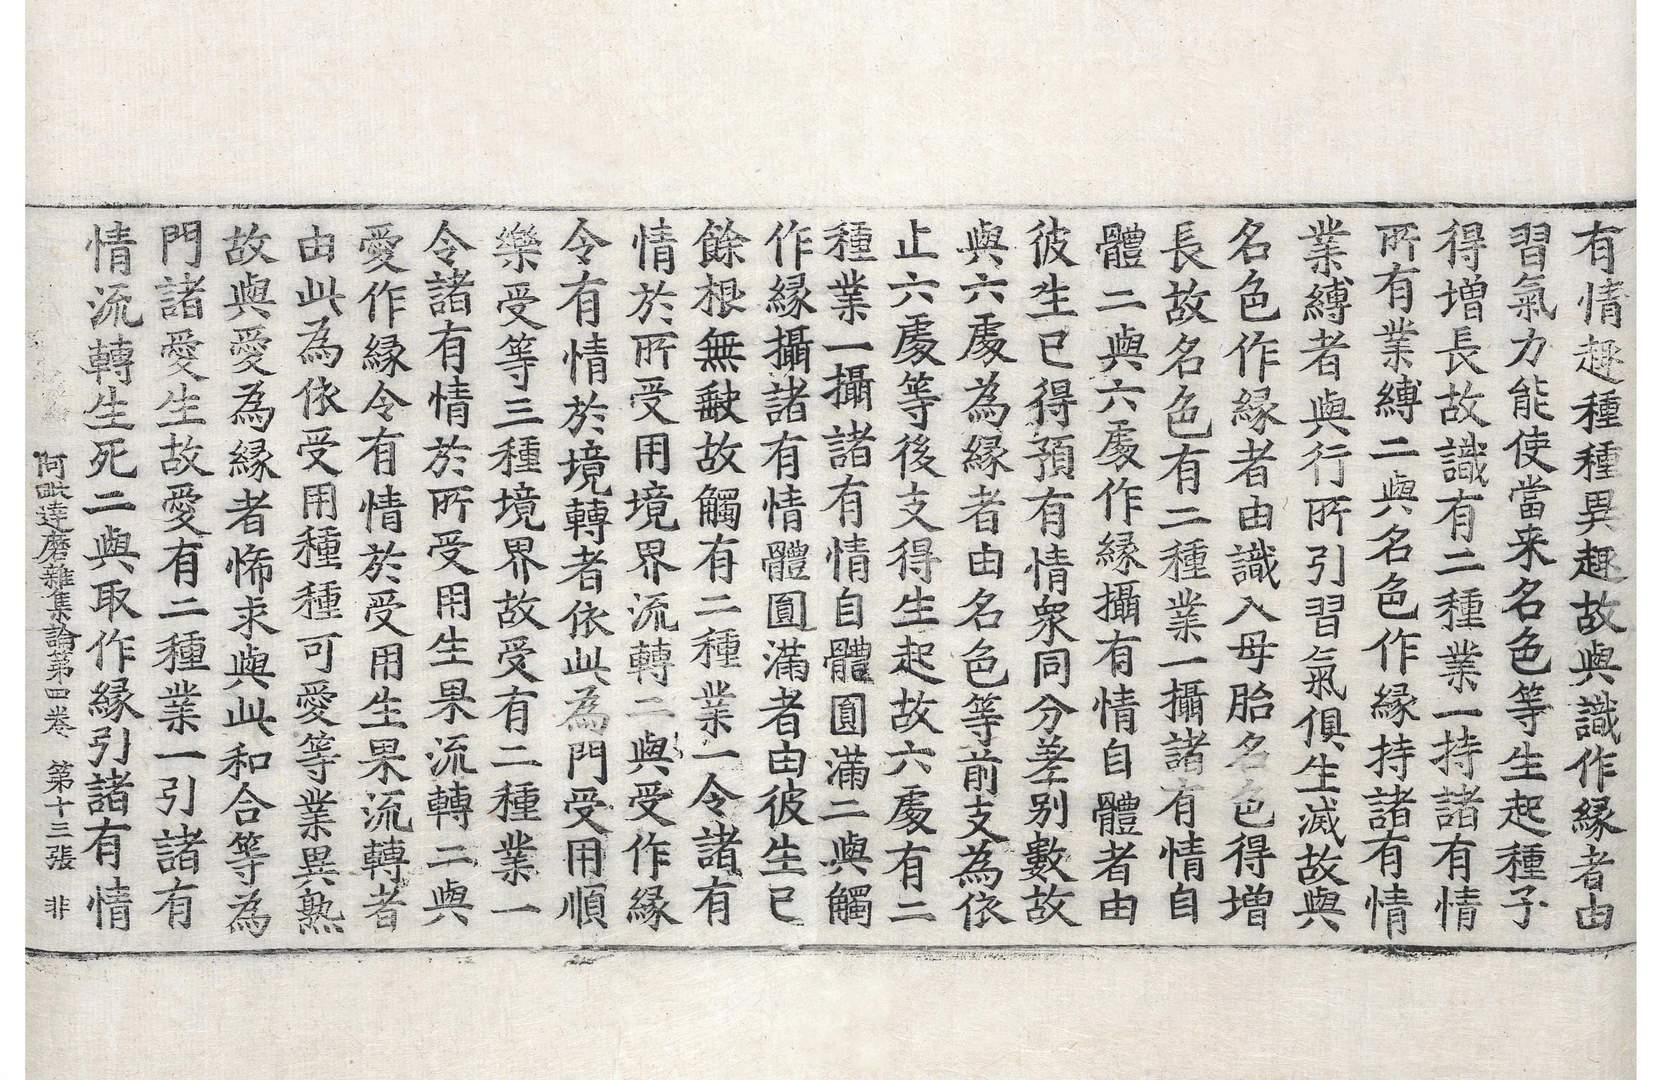 有情趣種種異趣故與識作縁者由
習氣力能使當来名色等生起種子
得增長故識有二種業一持諸有情
所有業縛二與名色作縁持諸有情
業縛者與行所引習氣俱生滅故與
名色作縁者由識入母胎名色得增
長故名色有二種業一攝諸有情自
體二與六處作縁攝有情自體者由
彼生已得預有情衆同分差别數故
與六處為縁者由名色等前支為依
止六處等後支得生起故六處有二
種業一攝諸有情自體圎滿二與觸
作縁攝諸有情體圎滿者由彼生已
餘根無㪇故觸有二種業一令諸有
情於所受用境界流轉二與受作縁
令有情於境轉者依此為門受用順
樂受等三種境界故受有二種業一
令諸有情於所受用生果流轉二與
愛作縁令有情於受用生果流轉者
由此為依受用種種可愛等業異熟
故與愛為縁者悕求與此和合等為
門諸愛生故愛有二種業一引諸有
情流轉生死二與取作縁引諸有情
阿毗達磨雜集論第四卷 第十三張 非